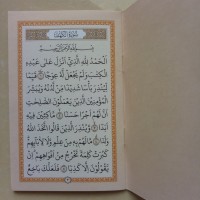 سورة الكهف
بسم الله الرحمن الرحيم
الحمد لله الذي أنزل على عبده
الكتب ولم يجعل له عوجا ۜ ١ قيما
لينذر بأسا شديدا من لدنه ويبشر
المؤمنين الذين يعملون الصلحت
أن لهم أجرا حسنا ٢ ماكثين فيه
أبدا ٣ وينذر الذين قالوا اتخذ الله
ولدا ٤ ما لهم به من علم ولا لآبائهم
كبرت كلمة تخرج من أفواههم إن
يقولون إلا كذبا ٥ فلعلك باخع